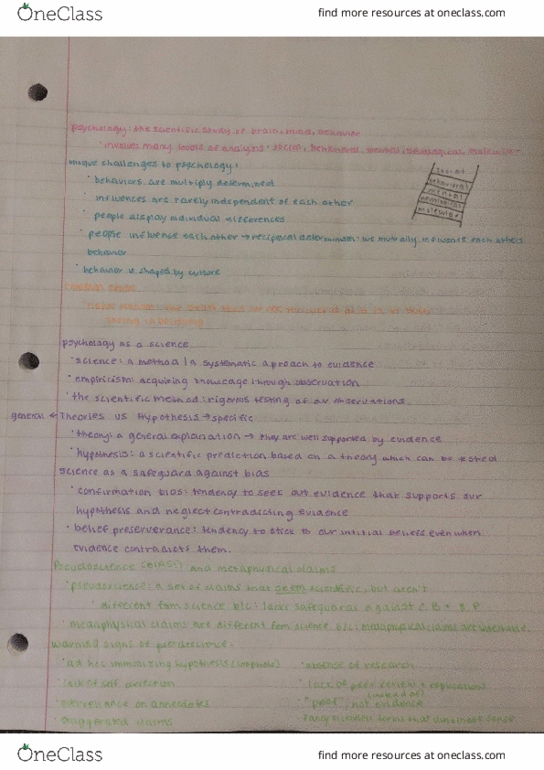 OneClass
find more resources at oneclass.com
psychology: the scientific study of brain, mind, behavior
involves many levels of analysis: social, behavioral, mental,
unique challenges to psychology:
behaviors are multiply determined
influences are rarely independent of each other
people display individual differences
people influence each other → reciprocal determinism: we mutually influence each others
behavior
behavior is shaped by culture
social
behavioral
mental
psychology as a science
science: a method / a systematic aproach to evidence
empiricism: acquiring knowledge through observation
the scientific method: rigorous testing of our observations
general ← Theories vs Hypothesis → specific
theory: a general explanation → they are well supported by evidence
hypothesis: a scientific prediction based on a theory which can be tested
science as a safeguard against bias
confirmation bias: tendency to seek out evidence that supports our
hypothesis and neglect contradicting evidence
belief preserverance: tendency to stick to our intitial beliefs even when
evidence contradicts them.
Pseudoscience (BIAS!) and metaphysical claims
pseudoscience: a set of claims that seem scientific, but aren't
different from science b/c: lacks safeguard against C.B + B.P
metaphysical claims are different from science b/c: metaphysical claims are
warning signs of
ad hoc immunizing hypothesis (loophole)
absence of research
lack of self correction
lack of peer review + replication
overreliance on anecdotes
(instead of)
"proof", not evidence
exaggerated claims
OneClass
find more resources at oneclass.com